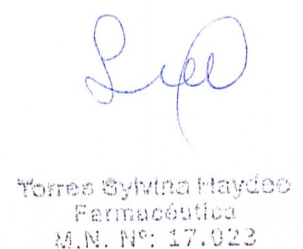 Torres Sylvina Haydee
Farmacéutica
M.N. Nº: 17.023